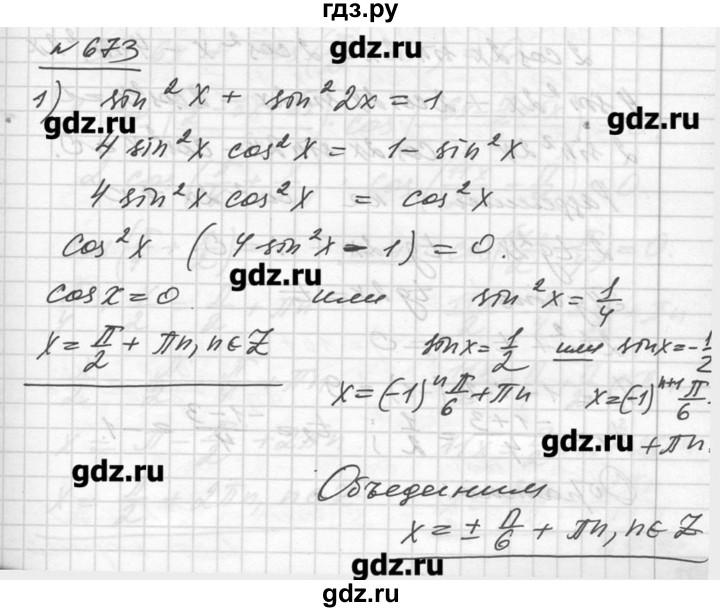 гдз.ру
№ 673
gdz.ru
1) sin²x + sin²2x = 1
gdz.ru gdz.ru
4 sin²x cos²x = 1 - sin²x
4 sin²x cos²x = cos²x
cos²x (4 sin²x - 1) = 0.
gdz.ru
cos x = 0 или sin²x = 1/4
x = π/2 + πn, n ∈ Z sin x = 1/2 или sin x = -1/2
x = (-1)ⁿ π/6 + πn x = (-1)ⁿ⁺¹ π/6 + πn.
gdz.ru gdz.ru
Объединим
x = ± π/6 + πn, n ∈ Z
gdz.ru
гдз.ру